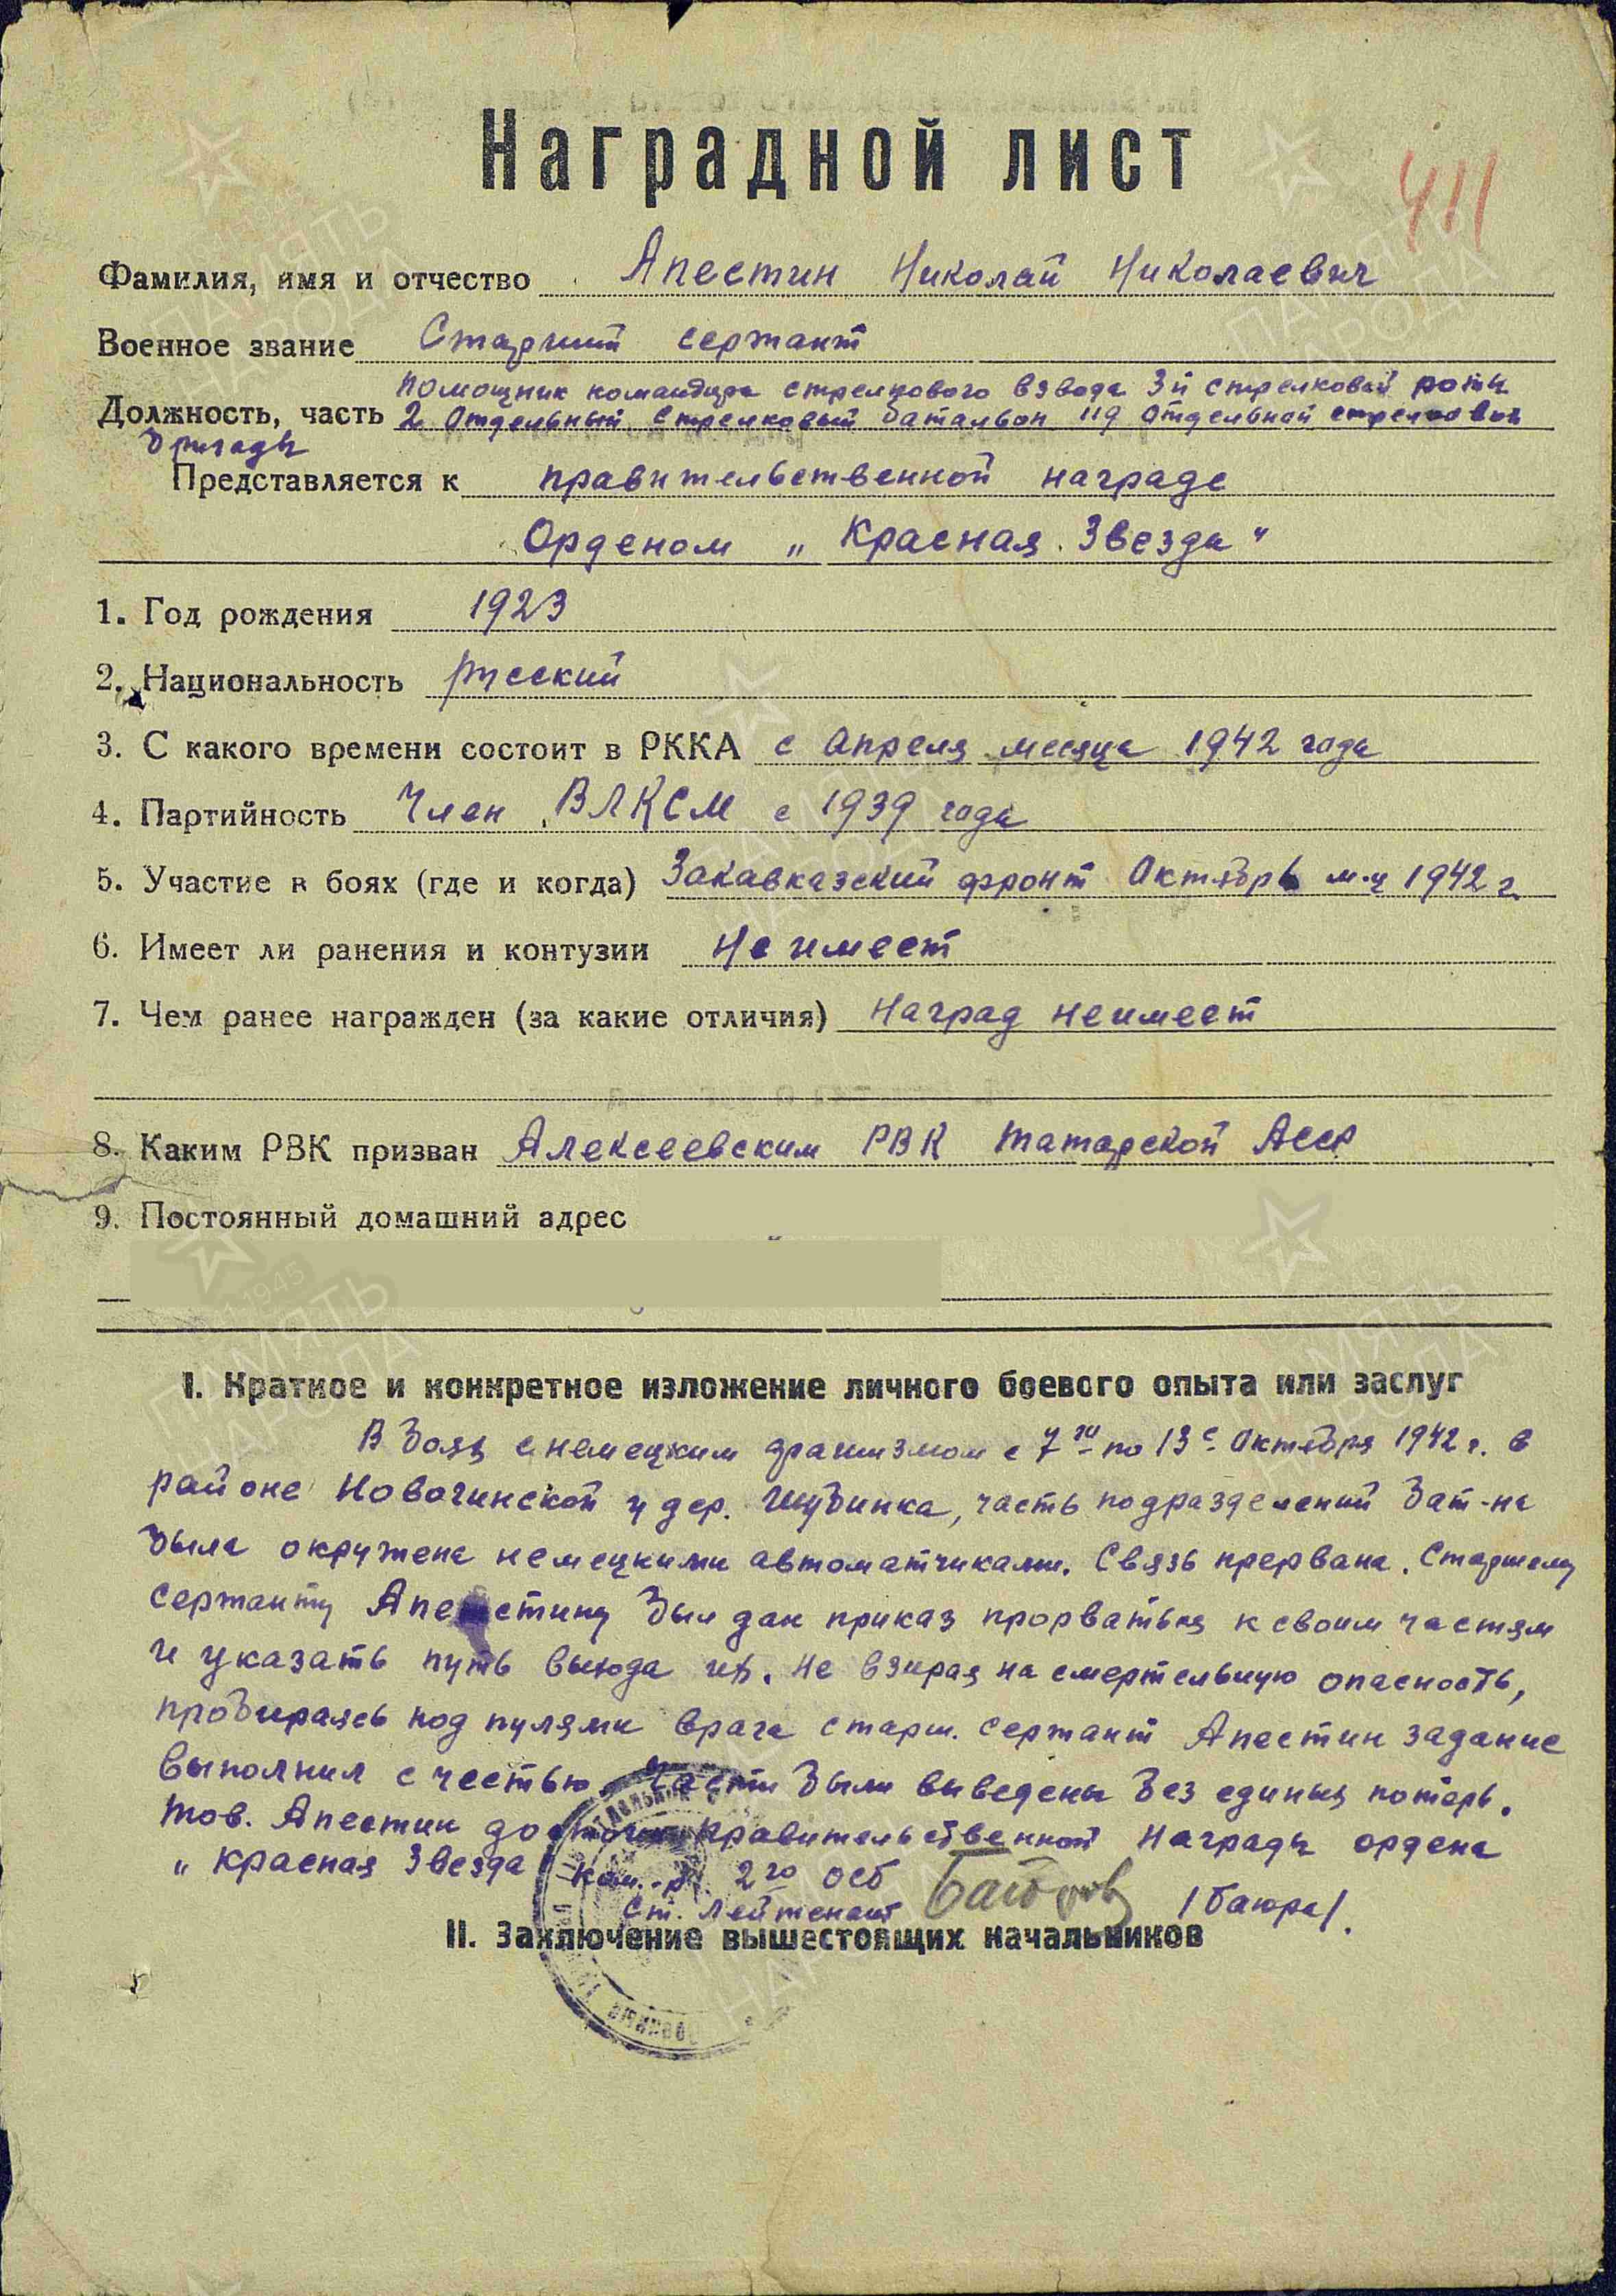 411
Наградной лист
Фамилия, имя и отчество Апестин Николай Николаевич
Военное звание Старший сержант
Помощник командира стрелкового взвода 3й стрелковой роты
Должность, часть 2 Отдельный стрелковый батальон 119 отдельной стрелковой
бригады
Представляется к правительственной награде
Орденом „Красная Звезда"
1. Год рождения 1923
2. Национальность русский
3. С какого времени состоит в РККА с Апреля месяца 1942 года
4. Партийность Член ВЛКСМ с 1939 года
5. Участие в боях (где и когда) Закавказский фронт Октябрь м-ц 1942 г
6. Имеет ли ранения и контузии Не имеет
7. Чем ранее награжден (за какие отличия) Наград неимеет
8. Каким РВК призван Алексеевским РВК Татарской АССР
9. Постоянный домашний адрес
I. Краткое и конкретное изложение личного боевого опыта или заслуг
В боях с немецким фашизмом с 7го по 13е Октября 1942 г. в
районе Новагинской у дер. Шубинка, часть подразделений бат-на
была окружена немецкими автоматчиками. Связь прервана. Старшему
сержанту Апестину был дан приказ прорваться к своим частям
и указать путь выхода их. Не взирая на смертельную опасность,
пробираясь под пулями врага старш. сержант Апестин задание
выполнил с честью. Части были выведены без единых потерь.
Тов. Апестин достоин правительственной Награды ордена
„Красная Звезда
Ком-р. 2го ОСБ
Ст. Лейтенант /Баюра/.
II. Заключение вышестоящих начальников
ПАМЯТЬ НАРОДА